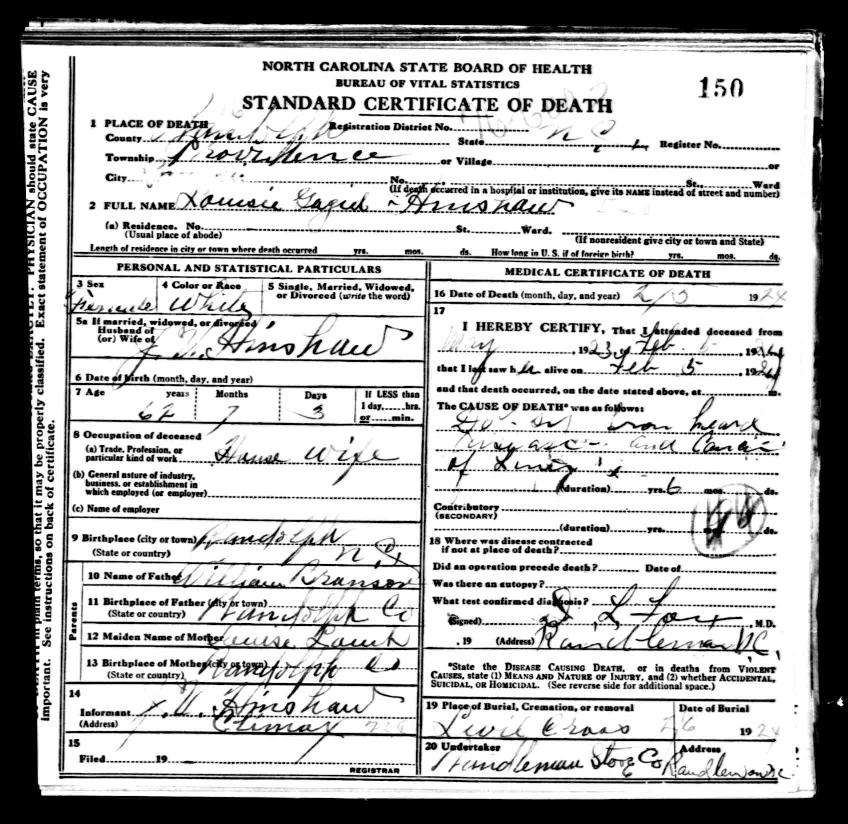 NORTH CAROLINA STATE BOARD OF HEALTH
BUREAU OF VITAL STATISTICS
150
STANDARD CERTIFICATE OF DEATH
1 PLACE OF DEATH
Registration District No.
County Randolph State N C Register No.
Township Providence or Village or
City No. St., Ward
(If death occurred in a hospital or institution, give its NAME instead of street and number)
2 FULL NAME Louisie Hinshaw
(a) Residence. No. St. Ward.
(Usual place of abode) (If nonresident give city or town and State)
Length of residence in city or town where death occurred yrs. mos. ds. How long in U. S. if of foreign birth? yrs. mos. ds.
PERSONAL AND STATISTICAL PARTICULARS
3 Sex 4 Color or Race 5 Single, Married, Widowed, or Divorced (write the word)
Female White
5a If married, widowed, or divorced
Husband of
(or) Wife of Hinshaw
6 Date of birth (month, day, and year)
7 Age years Months Days If LESS than
1 day, hrs.
or min.
62 7 3
8 Occupation of deceased
(a) Trade, Profession, or
particular kind of work House wife
(b) General nature of industry,
business, or establishment in
which employed (or employer)
(c) Name of employer
9 Birthplace (city or town) Randolph
(State or country) N. C.
Parents
10 Name of Father William Branson
11 Birthplace of Father (city or town)
(State or country) Randolph Co
12 Maiden Name of Mother Louise Lamb
13 Birthplace of Mother (city or town)
(State or country) Randolph Co
14
Informant J. Hinshaw
(Address) Climax
15
Filed 19
REGISTRAR
MEDICAL CERTIFICATE OF DEATH
16 Date of Death (month, day, and year) 2/5 1924
17
I HEREBY CERTIFY, That I attended deceased from
May, 1923, Feb. 5, 1924
that I last saw h alive on Feb 5, 1924
and that death occurred, on the date stated above, at m.
The CAUSE OF DEATH* was as follows:
and
of
(duration) yrs. 6 mos. ds.
Contributory
(SECONDARY)
(duration) yrs. mos. ds.
18 Where was disease contracted
if not at place of death?
Did an operation precede death? Date of
Was there an autopsy?
What test confirmed diagnosis?
(Signed) L Fox M.D.
, 19 (Address) Randleman N.C.
*State the DISEASE CAUSING DEATH, or in deaths from VIOLENT
CAUSES, state (1) MEANS AND NATURE OF INJURY, and (2) whether ACCIDENTAL,
SUICIDAL, OR HOMICIDAL. (See reverse side for additional space.)
19 Place of Burial, Cremation, or removal Date of Burial
Cross 2/6 1924
20 Undertaker Address
Randleman Store Co Randleman NC
PHYSICIAN should state CAUSE
in plain terms, so that it may be properly classified. Exact statement of OCCUPATION is very
important. See instructions on back of certificate.